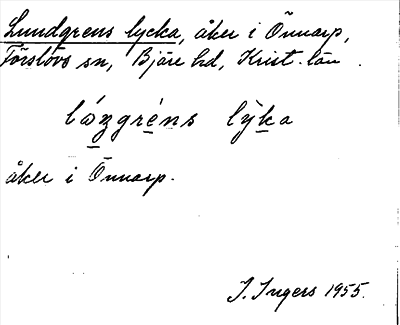 Lundgrens lycka, åker i Önnarp,
Förslövs sn, Bjäre hd, Krist. län.
lýka
åker i Önnarp.
I. Ingers 1955.